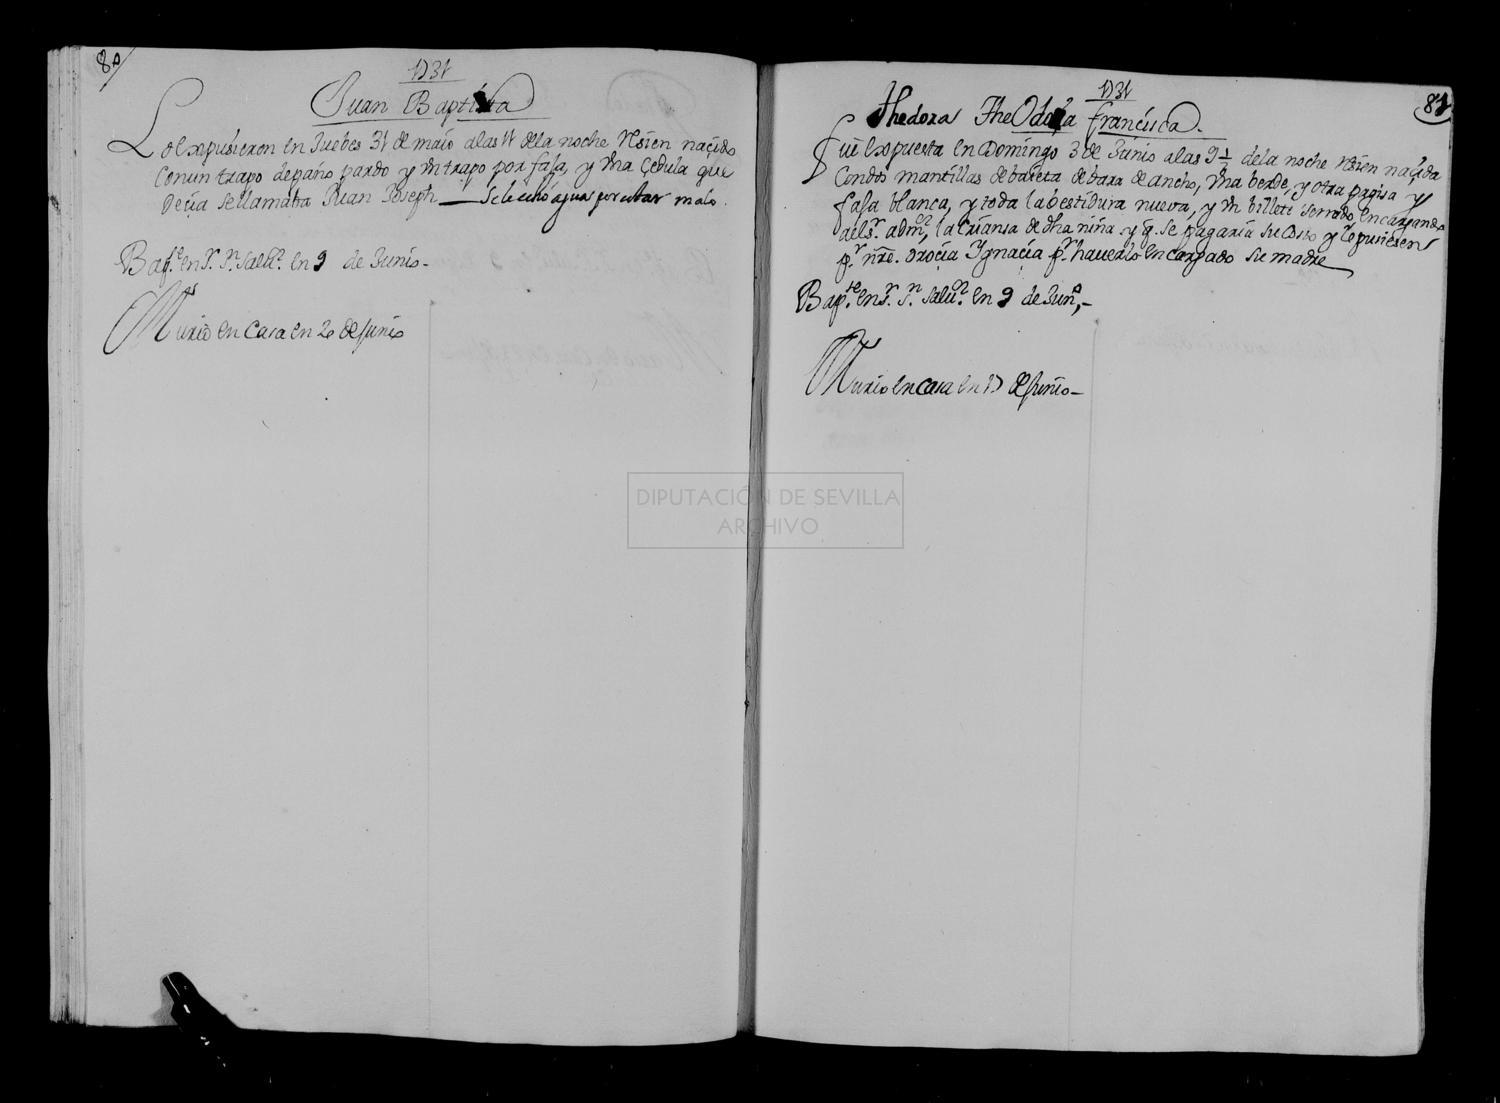 80
1731
Juan Baptista
Lo expusieron en Juebes 31 de maio a las 11 de la noche resien naçido
con un trapo de paño pardo y un trapo por faja, y una çedula que
deçia se llamaba Juan Joseph — se le echó agua por estar malo.
Bap.se en S.r S.n Salv.r en 9 de Junio.-
Murio en Casa en 20 de Junio
1731
81
Thedora Theodora Francisca.
fue expuesta en Domingo 3 de Junio a las 9 ½ de la noche resien naçida
con dos mantillas de baieta de bara de ancho, una berde, y otra pagisa y
faja blanca, y toda la bestidura nueva, y un billete serrado encargando
al s.r adm.or la criansa de dha niña y q. se pagaria su costo y le pusiesen
p.r nre. Ignaçia p.r haverlo encargado su madre
Bap.se en S.r S.n Salv.r en 9 de Jun.o,-
Murio en casa en 17 de Junio-
DIPUTACIÓN DE SEVILLA
ARCHIVO